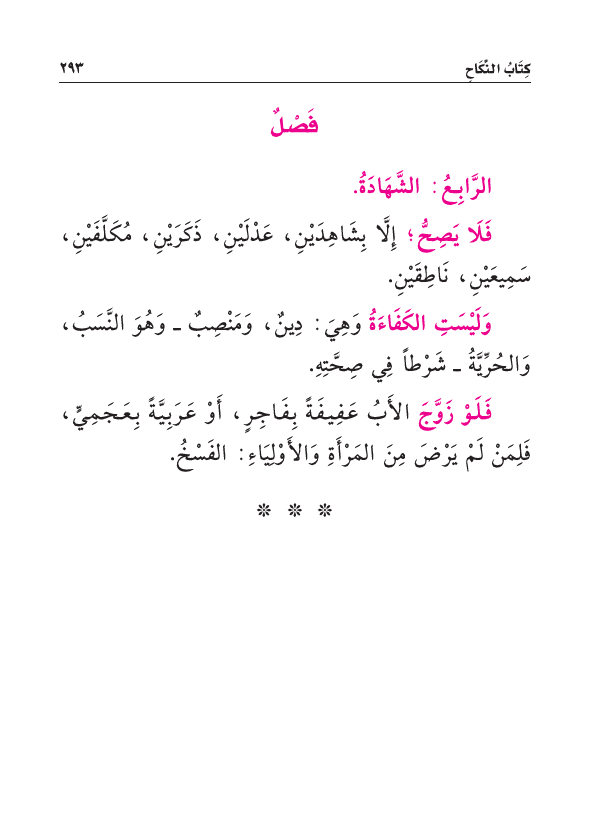 كِتَابُ النِّكَاحِ ٢٩٣
فَصْلٌ
الرَّابِعُ: الشَّهَادَةُ.
فَلَا يَصِحُّ؛ إِلَّا بِشَاهِدَيْنِ، عَدْلَيْنِ، ذَكَرَيْنِ، مُكَلَّفَيْنِ،
سَمِيعَيْنِ، نَاطِقَيْنِ.
وَلَيْسَتِ الكَفَاءَةُ وَهِيَ: دِينٌ، وَمَنْصِبٌ ـ وَهُوَ النَّسَبُ،
وَالحُرِّيَّةُ ـ شَرْطاً فِي صِحَّتِهِ.
فَلَوْ زَوَّجَ الأَبُ عَفِيفَةً بِفَاجِرٍ، أَوْ عَرَبِيَّةً بِعَجَمِيٍّ،
فَلِمَنْ لَمْ يَرْضَ مِنَ المَرْأَةِ وَالأَوْلِيَاءِ: الفَسْخُ.
❊ ❊ ❊